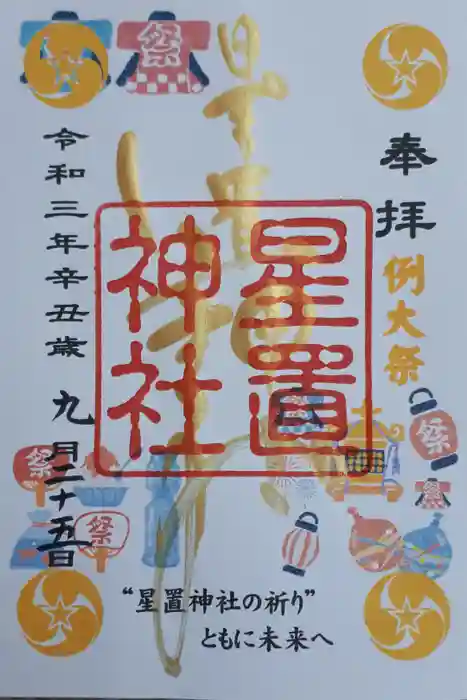 奉拝
例大祭
星置
神社
令和三年辛丑歳 九月二十五日
祭
祭
祭
祭
祭
“星置神社の祈り”
ともに未来へ